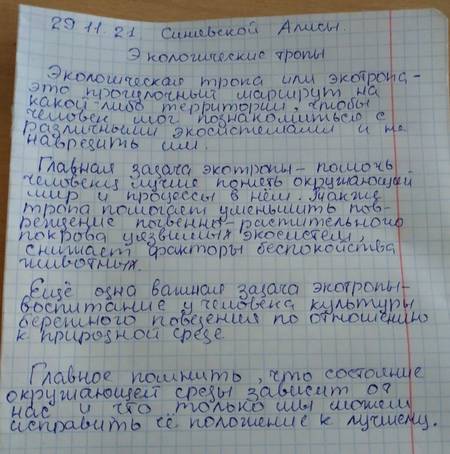 29.11.21 Синевской Алисы.
Экологические тропы
Экологическая тропа или экотропа-
это прогулочный маршрут на
какой-либо территории, чтобы
человек мог познакомиться с
различными экосистемами и не
навредить им.
Главная задача экотропы - помочь
человеку лучше понять окружающий
мир и процессы в нём. Также
тропа помогает уменьшить пов-
реждение почвенно-растительного
покрова уязвимых экосистем,
снижает факторы беспокойства
животных.
Ещё одна важная задача экотропы-
воспитание у человека культуры
бережного поведения по отношению
к природной среде
Главное помнить, что состояние
окружающей среды зависит от
нас и что только мы можем
исправить её положение к лучшему.